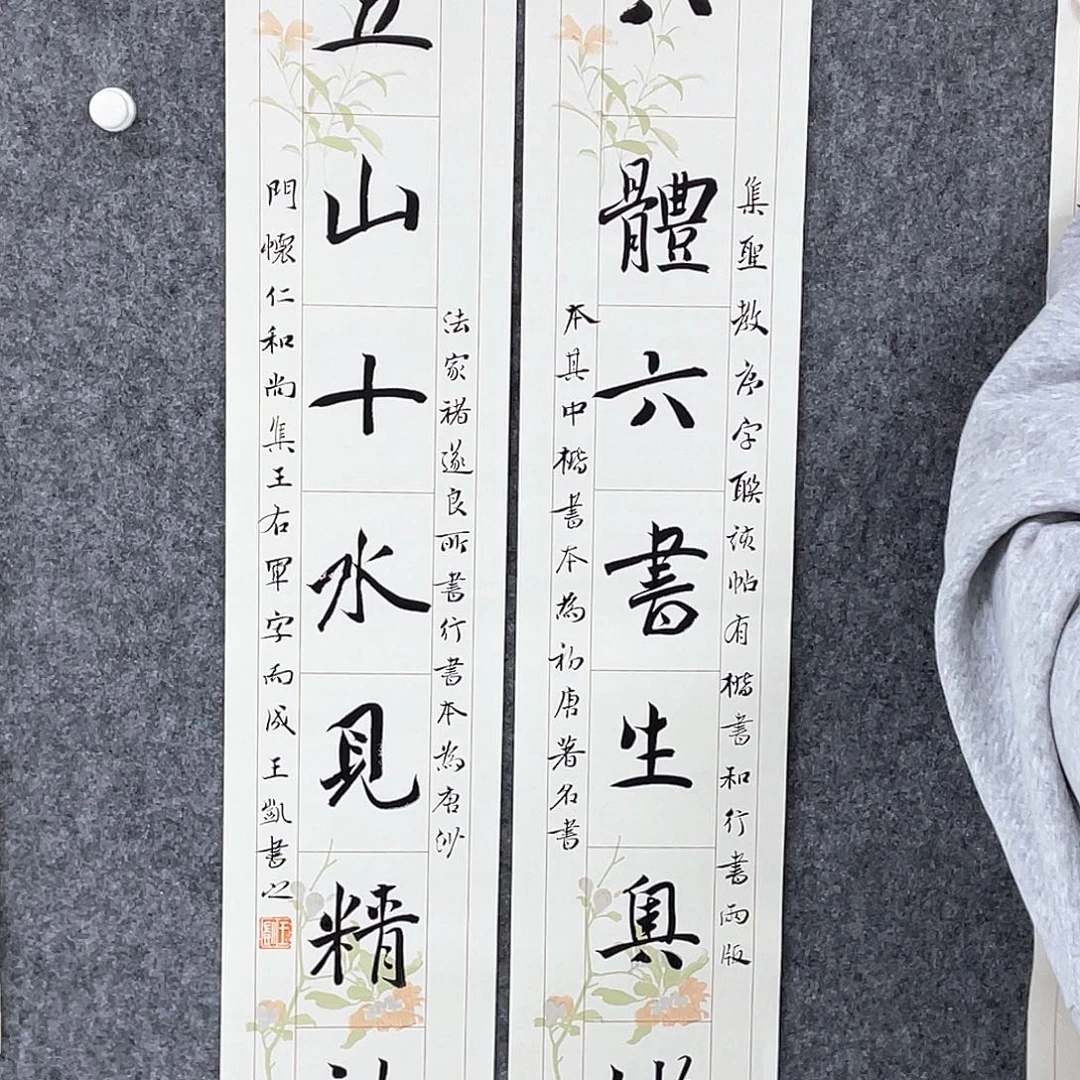 集聖教序字聯該帖有楷書和行書兩版
體六書生奥
本其中楷書本為初唐著名書
法家褚遂良所書行書本為唐沙
山十水見精
門懷仁和尚集王右軍字而成王凱書之